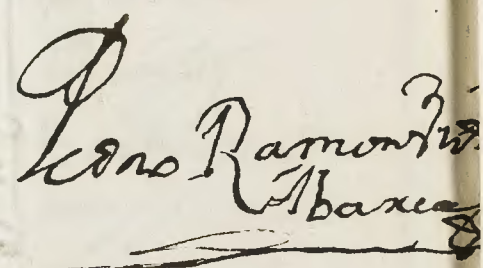 Pedro Ramon
Abarca